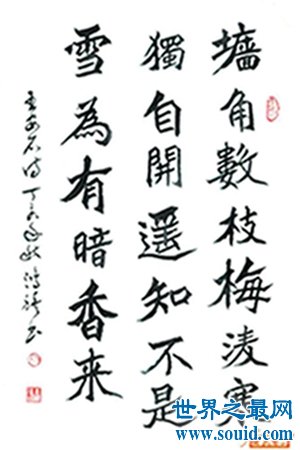 墻角數枝梅淩寒
獨自開遥知不是
雪為有暗香来
王安石诗 丁亥
世界之最网
www.souid.com